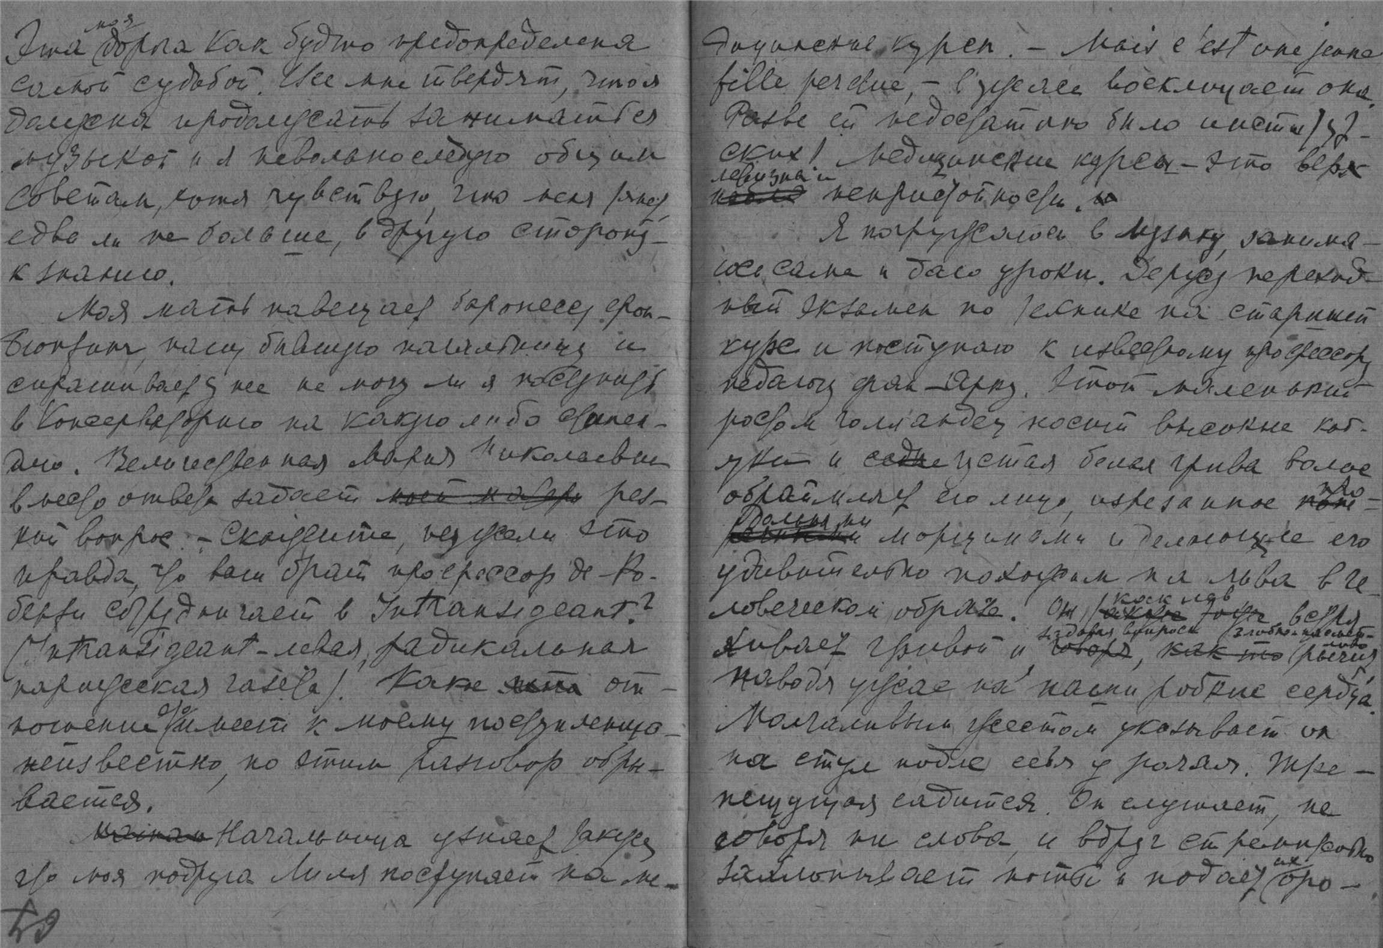 Эта моя дорога как будто предопределена
самой судьбой. Все мне твердят, что я
должна продолжать заниматься
музыкой и я невольно следую общим
советам, хотя чувствую, что меня тянет
едва ли не больше, в другую сторону –
к знанию.
Моя мать навещает баронессу фон-
нашу бывшую начальницу и
спрашивает у нее не могу ли я поступить
в Консерваторию на какую либо стипен-
дию. Величественная Мария Николаевна
вместо ответа задает моей матери рез-
кий вопрос. – Скажите, неужели это
правда, что ваш брат профессор де Ро-
берти сотрудничает в Intransigeant?
(Intransigeant – левая, радикальная
парижская газета). Какое отно-
ношение это имеет к моему поступлению –
неизвестно, но этим разговор обры-
вается.
Начальница узнает также
что моя подруга Лиля поступает на ме-
49
дицинские курсы. – Mais c'est une jeune
fille perdue, – в ужасе восклицает она.
Разве ей недостаточно было институт-
ских! Медицинские курсы – это верх
неприс­тойности.
Я погружаюсь в музыку, занима-
юсь сама и даю уроки. Держу переход-
ный экзамен по технике на старший
курс и поступаю к известному профессору
педагогу фан-Арку. Этот маленький
ростом голландец носит высокие каб-
луки и густая белая грива волос
обрамляет его лицо, изрезанное про-
дольными морщинами и делающие его
удивительно похожим на льва в че-
ловеческом образе. Он как лев встря
хивает гривой и задавая вопросы рычит,
наводя ужас на наши робкие сердца.
Молчаливым жестом указывает он
на стул подле себя у рояля. Тре-
пещущая садится. Он слушает, не
говоря ни слова, и вдруг стремительно
захлопывает ноты и подает их оро-